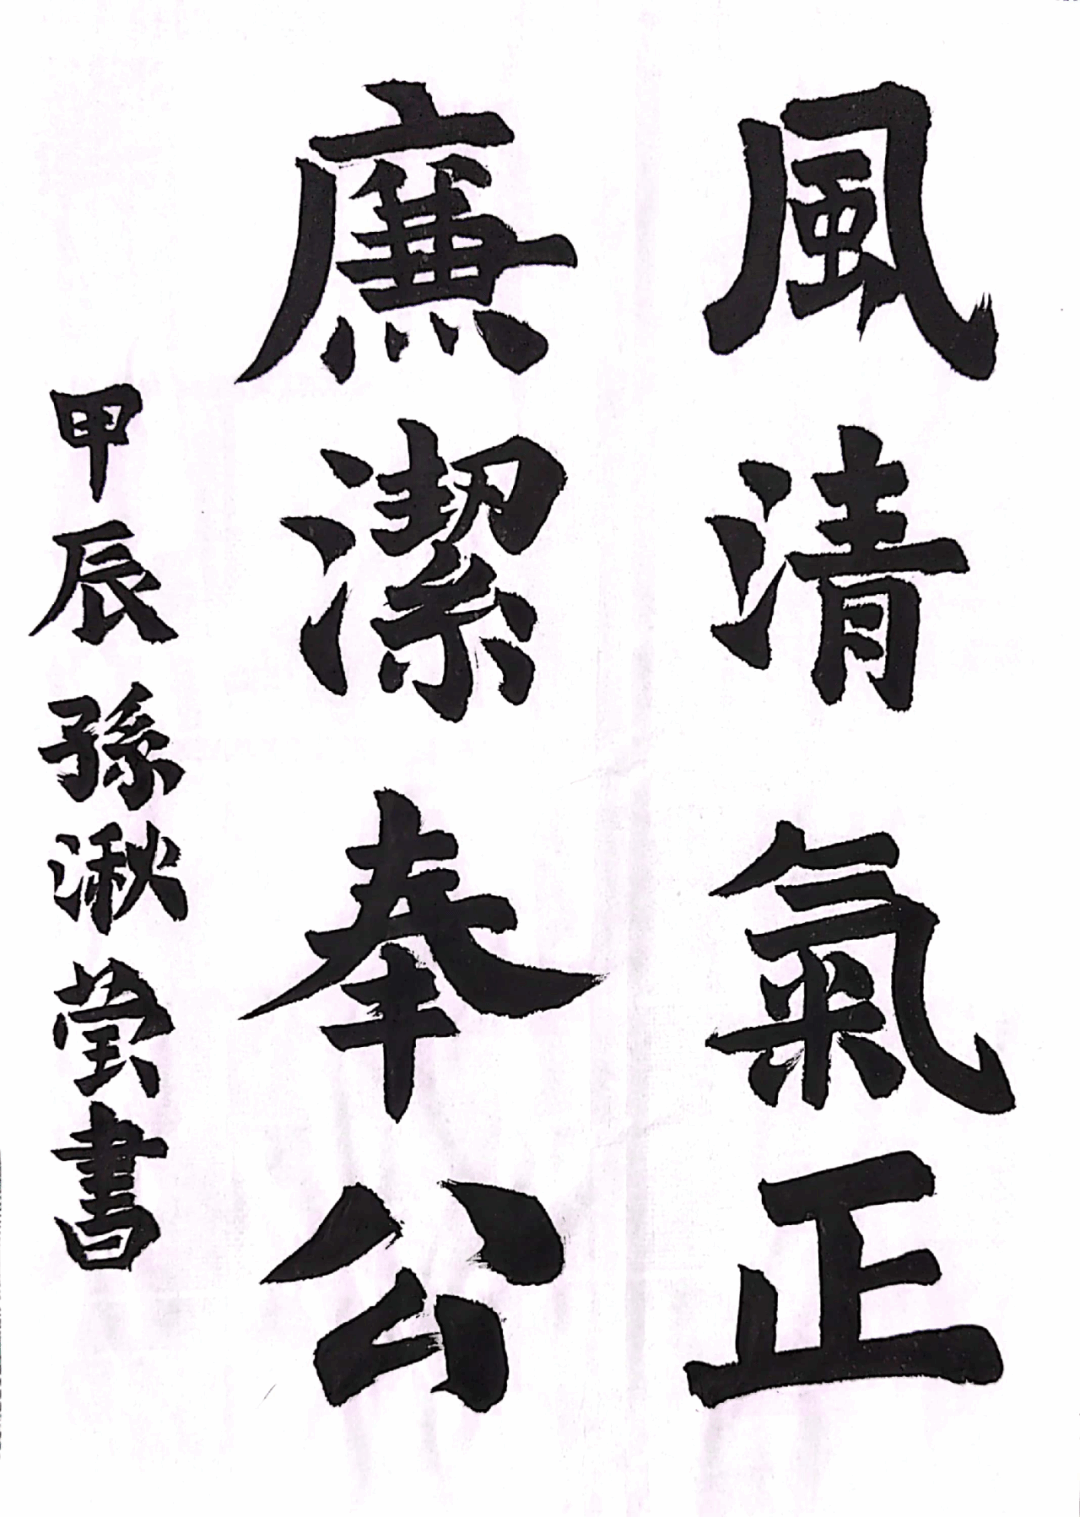 風清氣正
廉潔奉公
甲辰孫湫莹書